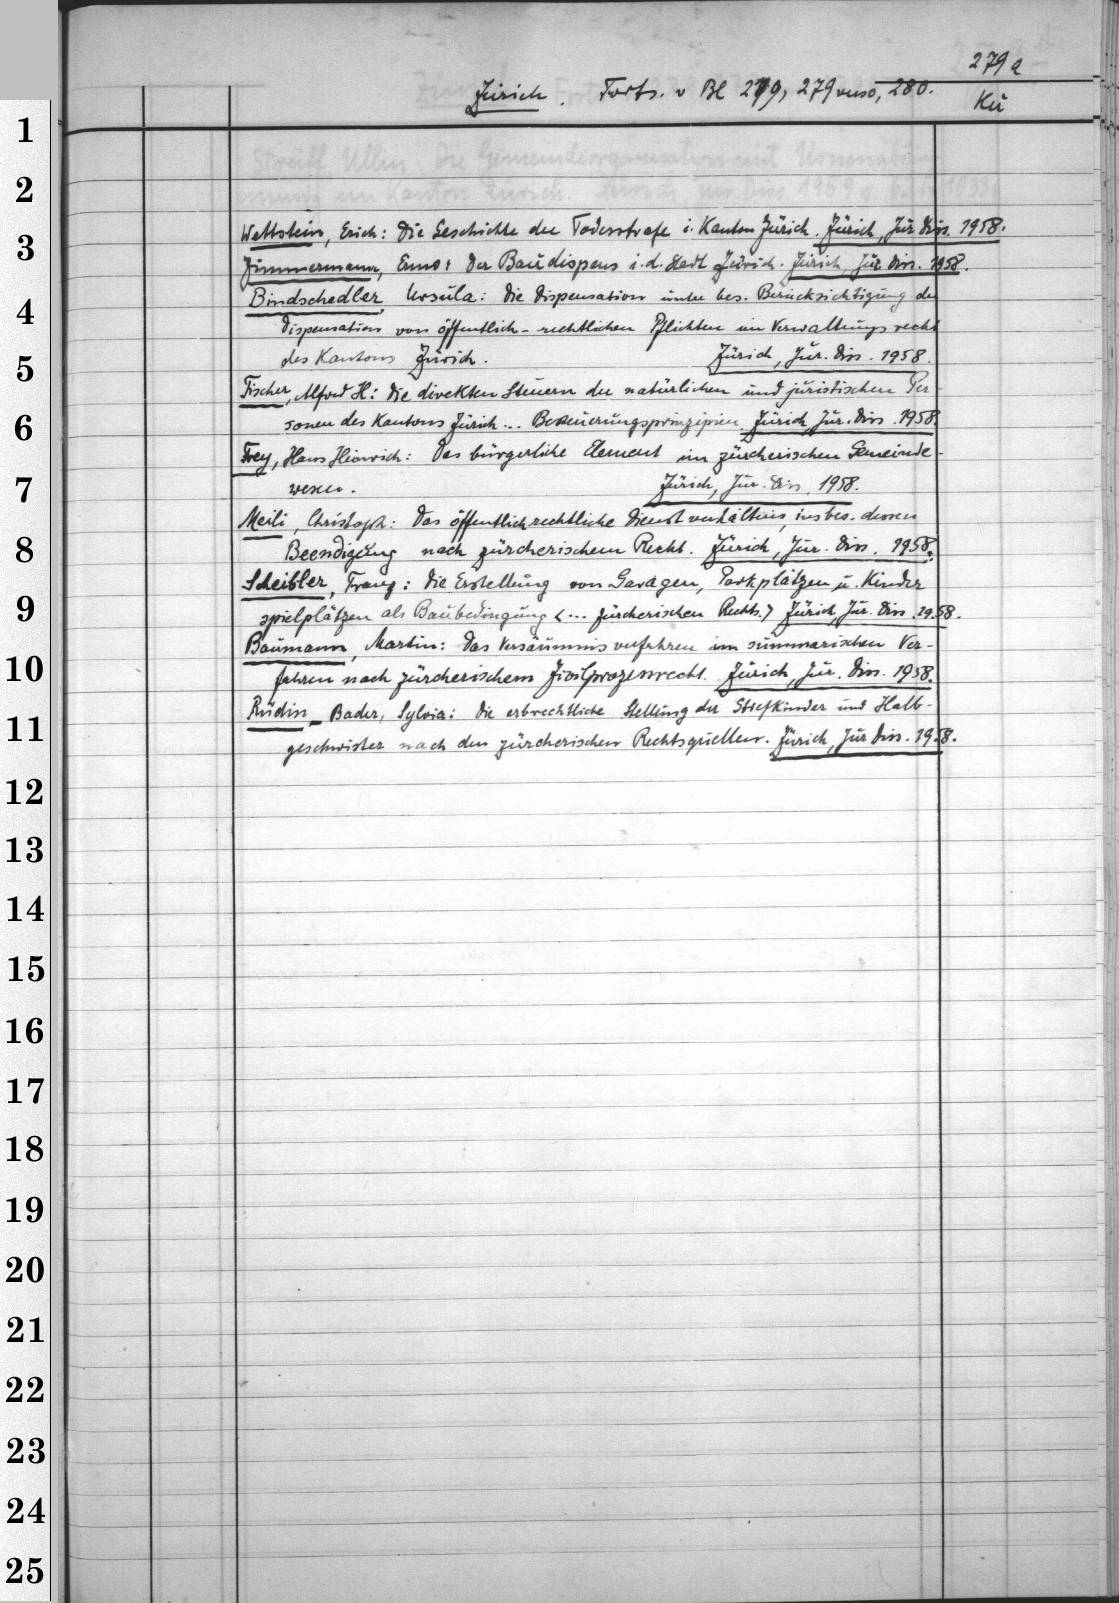 279a
Zürich. Forts. v Bl 279, 279 verso, 280.
Kü
Wettstein, Erich: Die Geschichte der Todesstrafe i. Kanton Zürich. Zürich, Jur. Diss. 1958.
Zimmermann, Enno: Der Baudispens i. d. Stadt Zürich. Zürich, Jur. Diss. 1958.
Bindschedler, Ursula: Die Dispensation unter bes. Berücksichtigung der
Dispensation von öffentlich-rechtlichen Pflichten im Verwaltungsrecht
des Kantons Zürich. Zürich, Jur. Diss. 1958.
Fischer, Alfred H: Die direkten Steuern der natürlichen und juristischen Per-
sonen des Kantons Zürich... Besteuerungsprinzipien. Zürich, Jur. Diss. 1958.
Frey, Hans Heinrich: Das bürgerliche Element im zürcherischen Gemeinde-
wesen. Zürich, Jur. Diss. 1958.
Meili, Christoph: Das öffentlichrechtliche Dienstverhältnis, insbes. dessen
Beendigung nach zürcherischem Recht. Zürich, Jur. Diss. 1958.
Scheibler, Franz: Die Erstellung von Garagen, Parkplätzen u. Kinder
spielplätzen als Baubedingung <... zürcherischen Rechts.> Zürich, Jur. Diss. 1958.
Baumann, Martin: Das Versäumnisverfahren im summarischen Ver-
fahren nach zürcherischem Zivilprozessrecht. Zürich, Jur. Diss. 1958.
Rüdin-Bader, Sylvia: Die erbrechtliche Stellung der Stiefkinder und Halb-
geschwister nach den zürcherischen Rechtsquellen. Zürich, Jur. Diss. 1958.
1
2
3
4
5
6
7
8
9
10
11
12
13
14
15
16
17
18
19
20
21
22
23
24
25